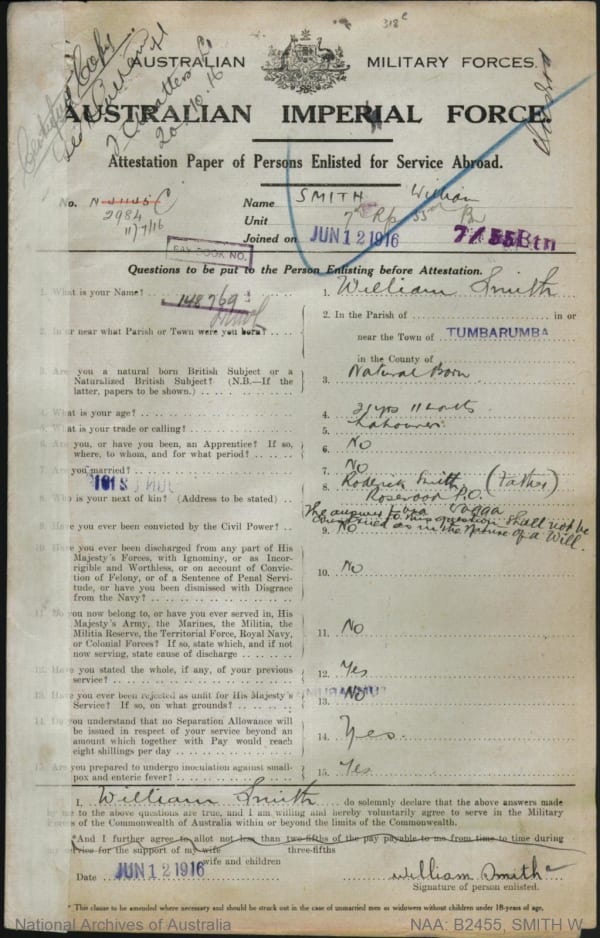 318
AUSTRALIAN MILITARY FORCES.
AUSTRALIAN IMPERIAL FORCE.
20.10.16
Attestation Paper of Persons Enlisted for Service Abroad.
No.
2984
11/7/16
Name SMITH William
Unit 7th Rfs 55th Bn
Joined on JUN 12 1916 7/55 Btn
PAY BOOK NO.
Questions to be put to the Person Enlisting before Attestation.
1. What is your Name?
148769
1. William Smith
2. In or near what Parish or Town were you born?
2. In the Parish of in or
near the Town of TUMBARUMBA
in the County of
3. Are you a natural born British Subject or a
Naturalized British Subject? (N.B.—If the
latter, papers to be shown.)
3. Natural Born
4. What is your age?
4. 21 yrs 11
5. What is your trade or calling?
5. Labourer
6. Are you, or have you been, an Apprentice? If so,
where, to whom, and for what period?
6. No
7. Are you married?
7. No
8. Who is your next of kin? (Address to be stated)
8. Roderick Smith (Father)
Rosewood P.O.
via Wagga
The answer to this question shall not be
construed as in the nature of a Will.
9. Have you ever been convicted by the Civil Power?
9. No
10. Have you ever been discharged from any part of His
Majesty's Forces, with Ignominy, or as Incor-
rigible and Worthless, or on account of Convic-
tion of Felony, or of a Sentence of Penal Servi-
tude, or have you been Dismissed with Disgrace
from the Navy?
10. No
11. Do you now belong to, or have you ever served in, His
Majesty's Army, the Marines, the Militia, the
Militia Reserve, the Territorial Force, Royal Navy,
or Colonial Forces? If so, state which, and if not
now serving, state cause of discharge
11. No
12. Have you stated the whole, if any, of your previous
service?
12. Yes
13. Have you ever been rejected as unfit for His Majesty's
Service? If so, on what grounds?
13. No
14. Do you understand that no Separation Allowance will
be issued in respect of your service beyond an
amount which together with Pay would reach
eight shillings per day
14. Yes.
15. Are you prepared to undergo inoculation against small-
pox and enteric fever?
15. Yes
I, William Smith do solemnly declare that the above answers made
by me to the above questions are true, and I am willing and hereby voluntarily agree to serve in the Military
Forces of the Commonwealth of Australia within or beyond the limits of the Commonwealth.
*And I further agree to allot not less than two-fifths of the pay payable to me from time to time during
three-fifths
service for the support of my wife
wife and children
Date JUN 12 1916
William Smith
Signature of person enlisted.
* This clause to be amended where necessary and should be struck out in the case of unmarried men or widowers without children under 18-years of age.
National Archives of Australia NAA: B2455, SMITH W